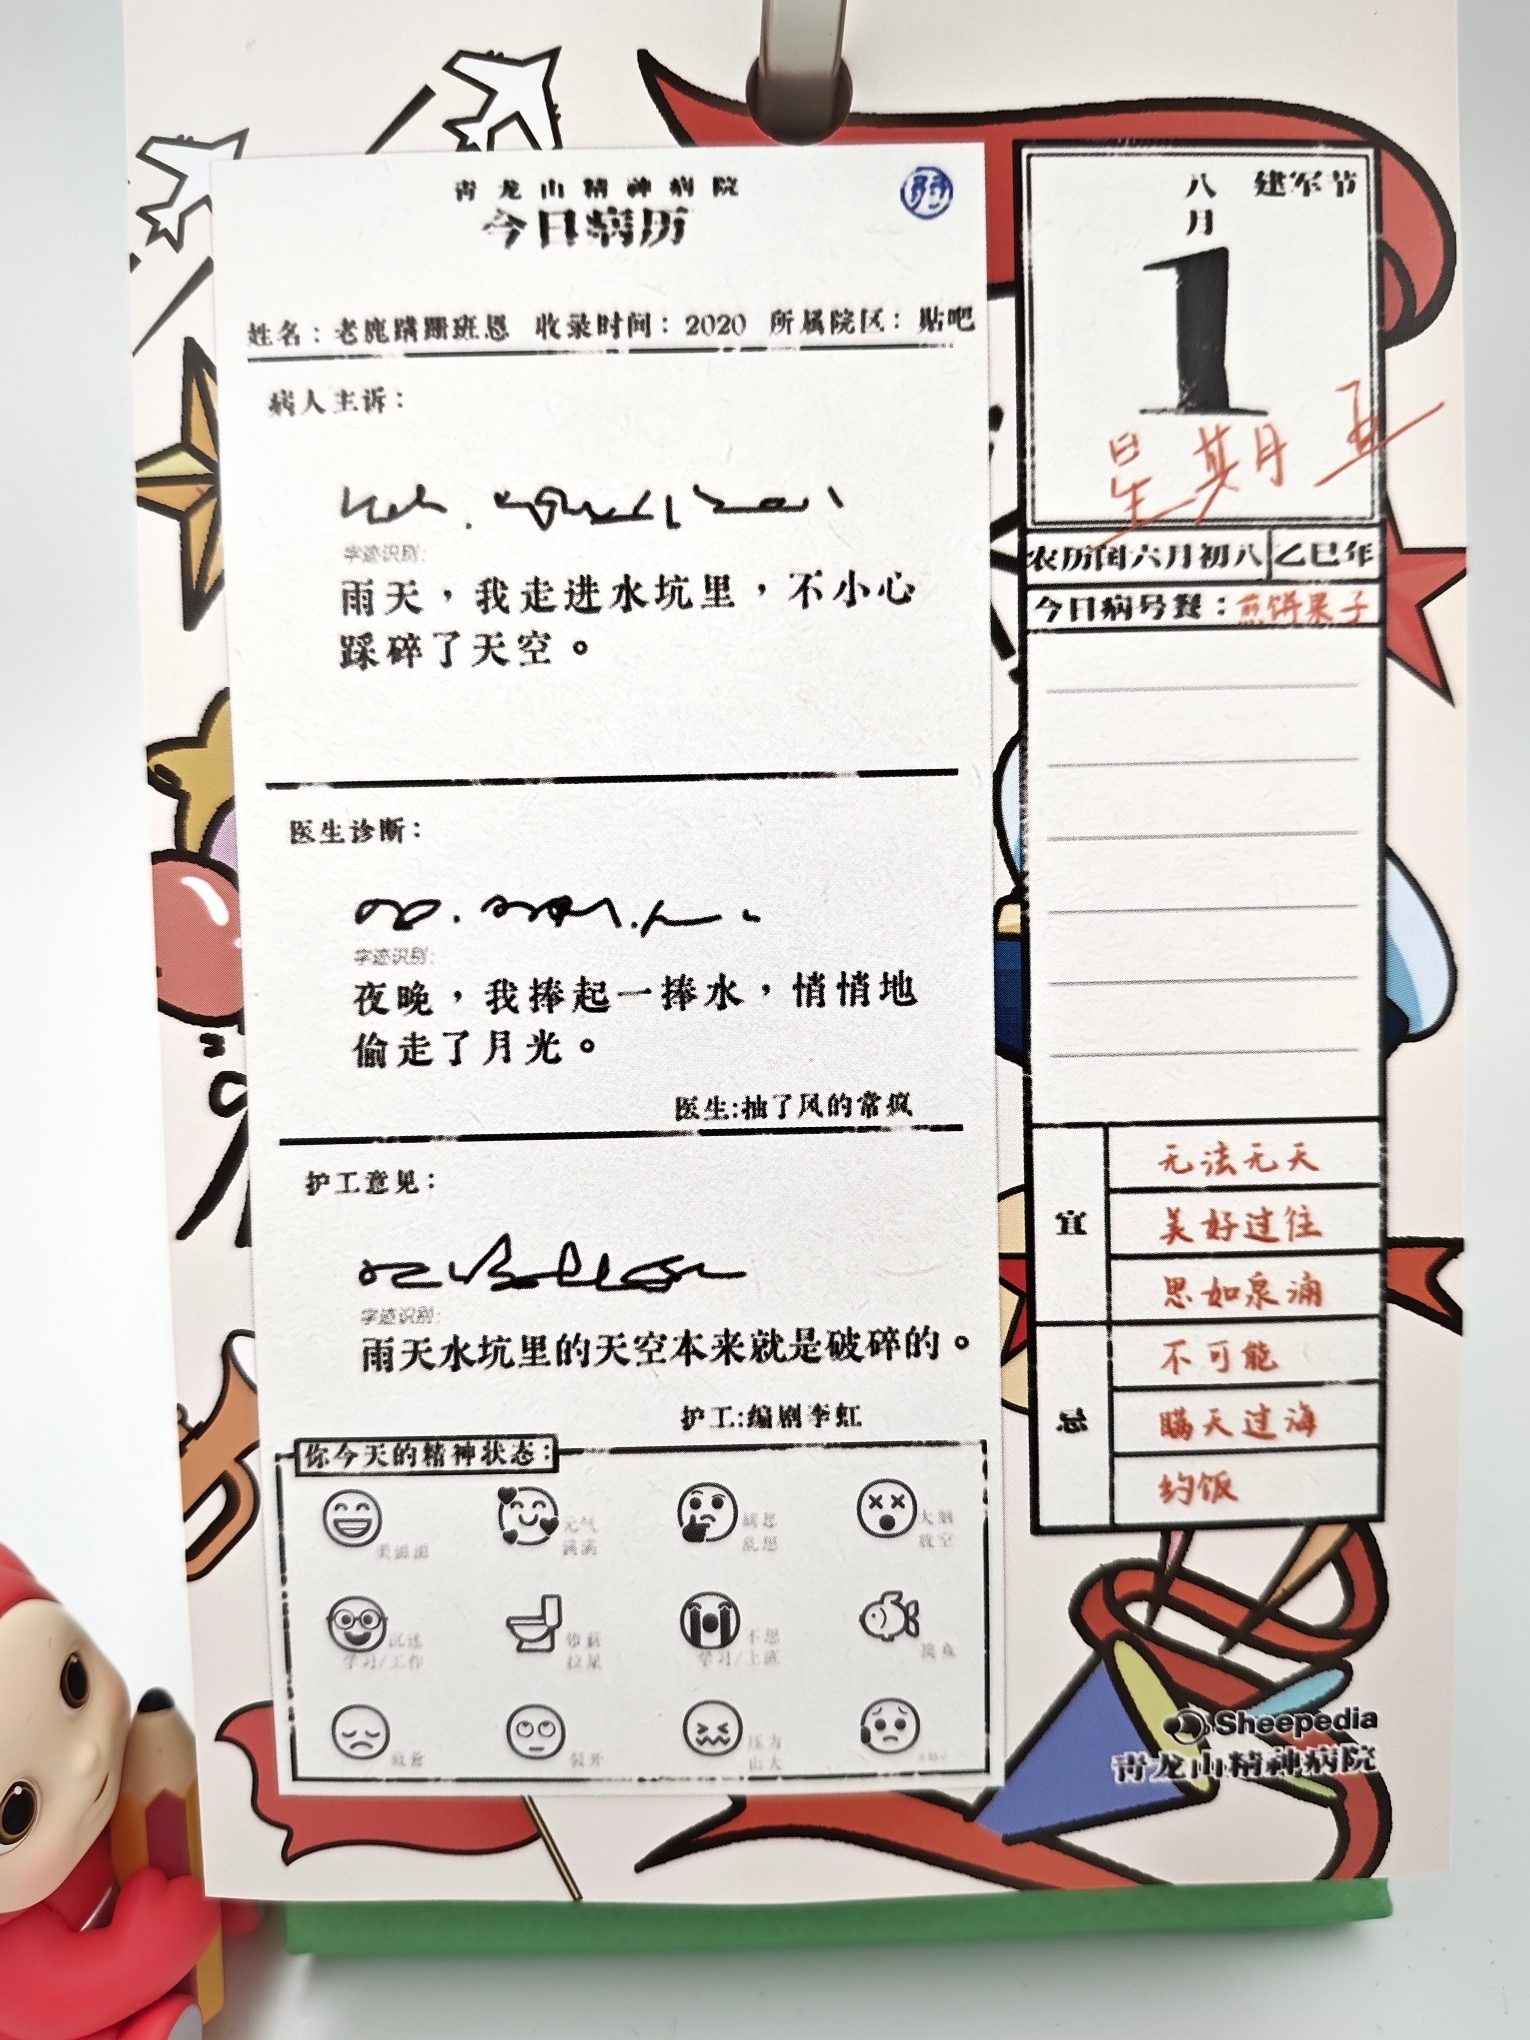 青龙山精神病院
今日病历
姓名：老鹿蹒跚班恩 收录时间：2020 所属院区：贴吧
病人主诉：
字迹识别：
雨天，我走进水坑里，不小心
踩碎了天空。
医生诊断：
字迹识别：
夜晚，我捧起一捧水，悄悄地
偷走了月光。
医生:抽了风的常疯
护工意见：
字迹识别：
雨天水坑里的天空本来就是破碎的。
护工:编剧李虹
你今天的精神状态：
美滋滋
元气
满满
胡思
乱想
大脑
放空
沉迷
学习/工作
不想
学习/上班
摸鱼
裂开
压力
山大
八月
建军节
1
星期五
农历闰六月初八
乙巳年
今日病号餐：煎饼果子
宜
无法无天
美好过往
思如泉涌
忌
不可能
瞒天过海
约饭
Sheepedia
青龙山精神病院